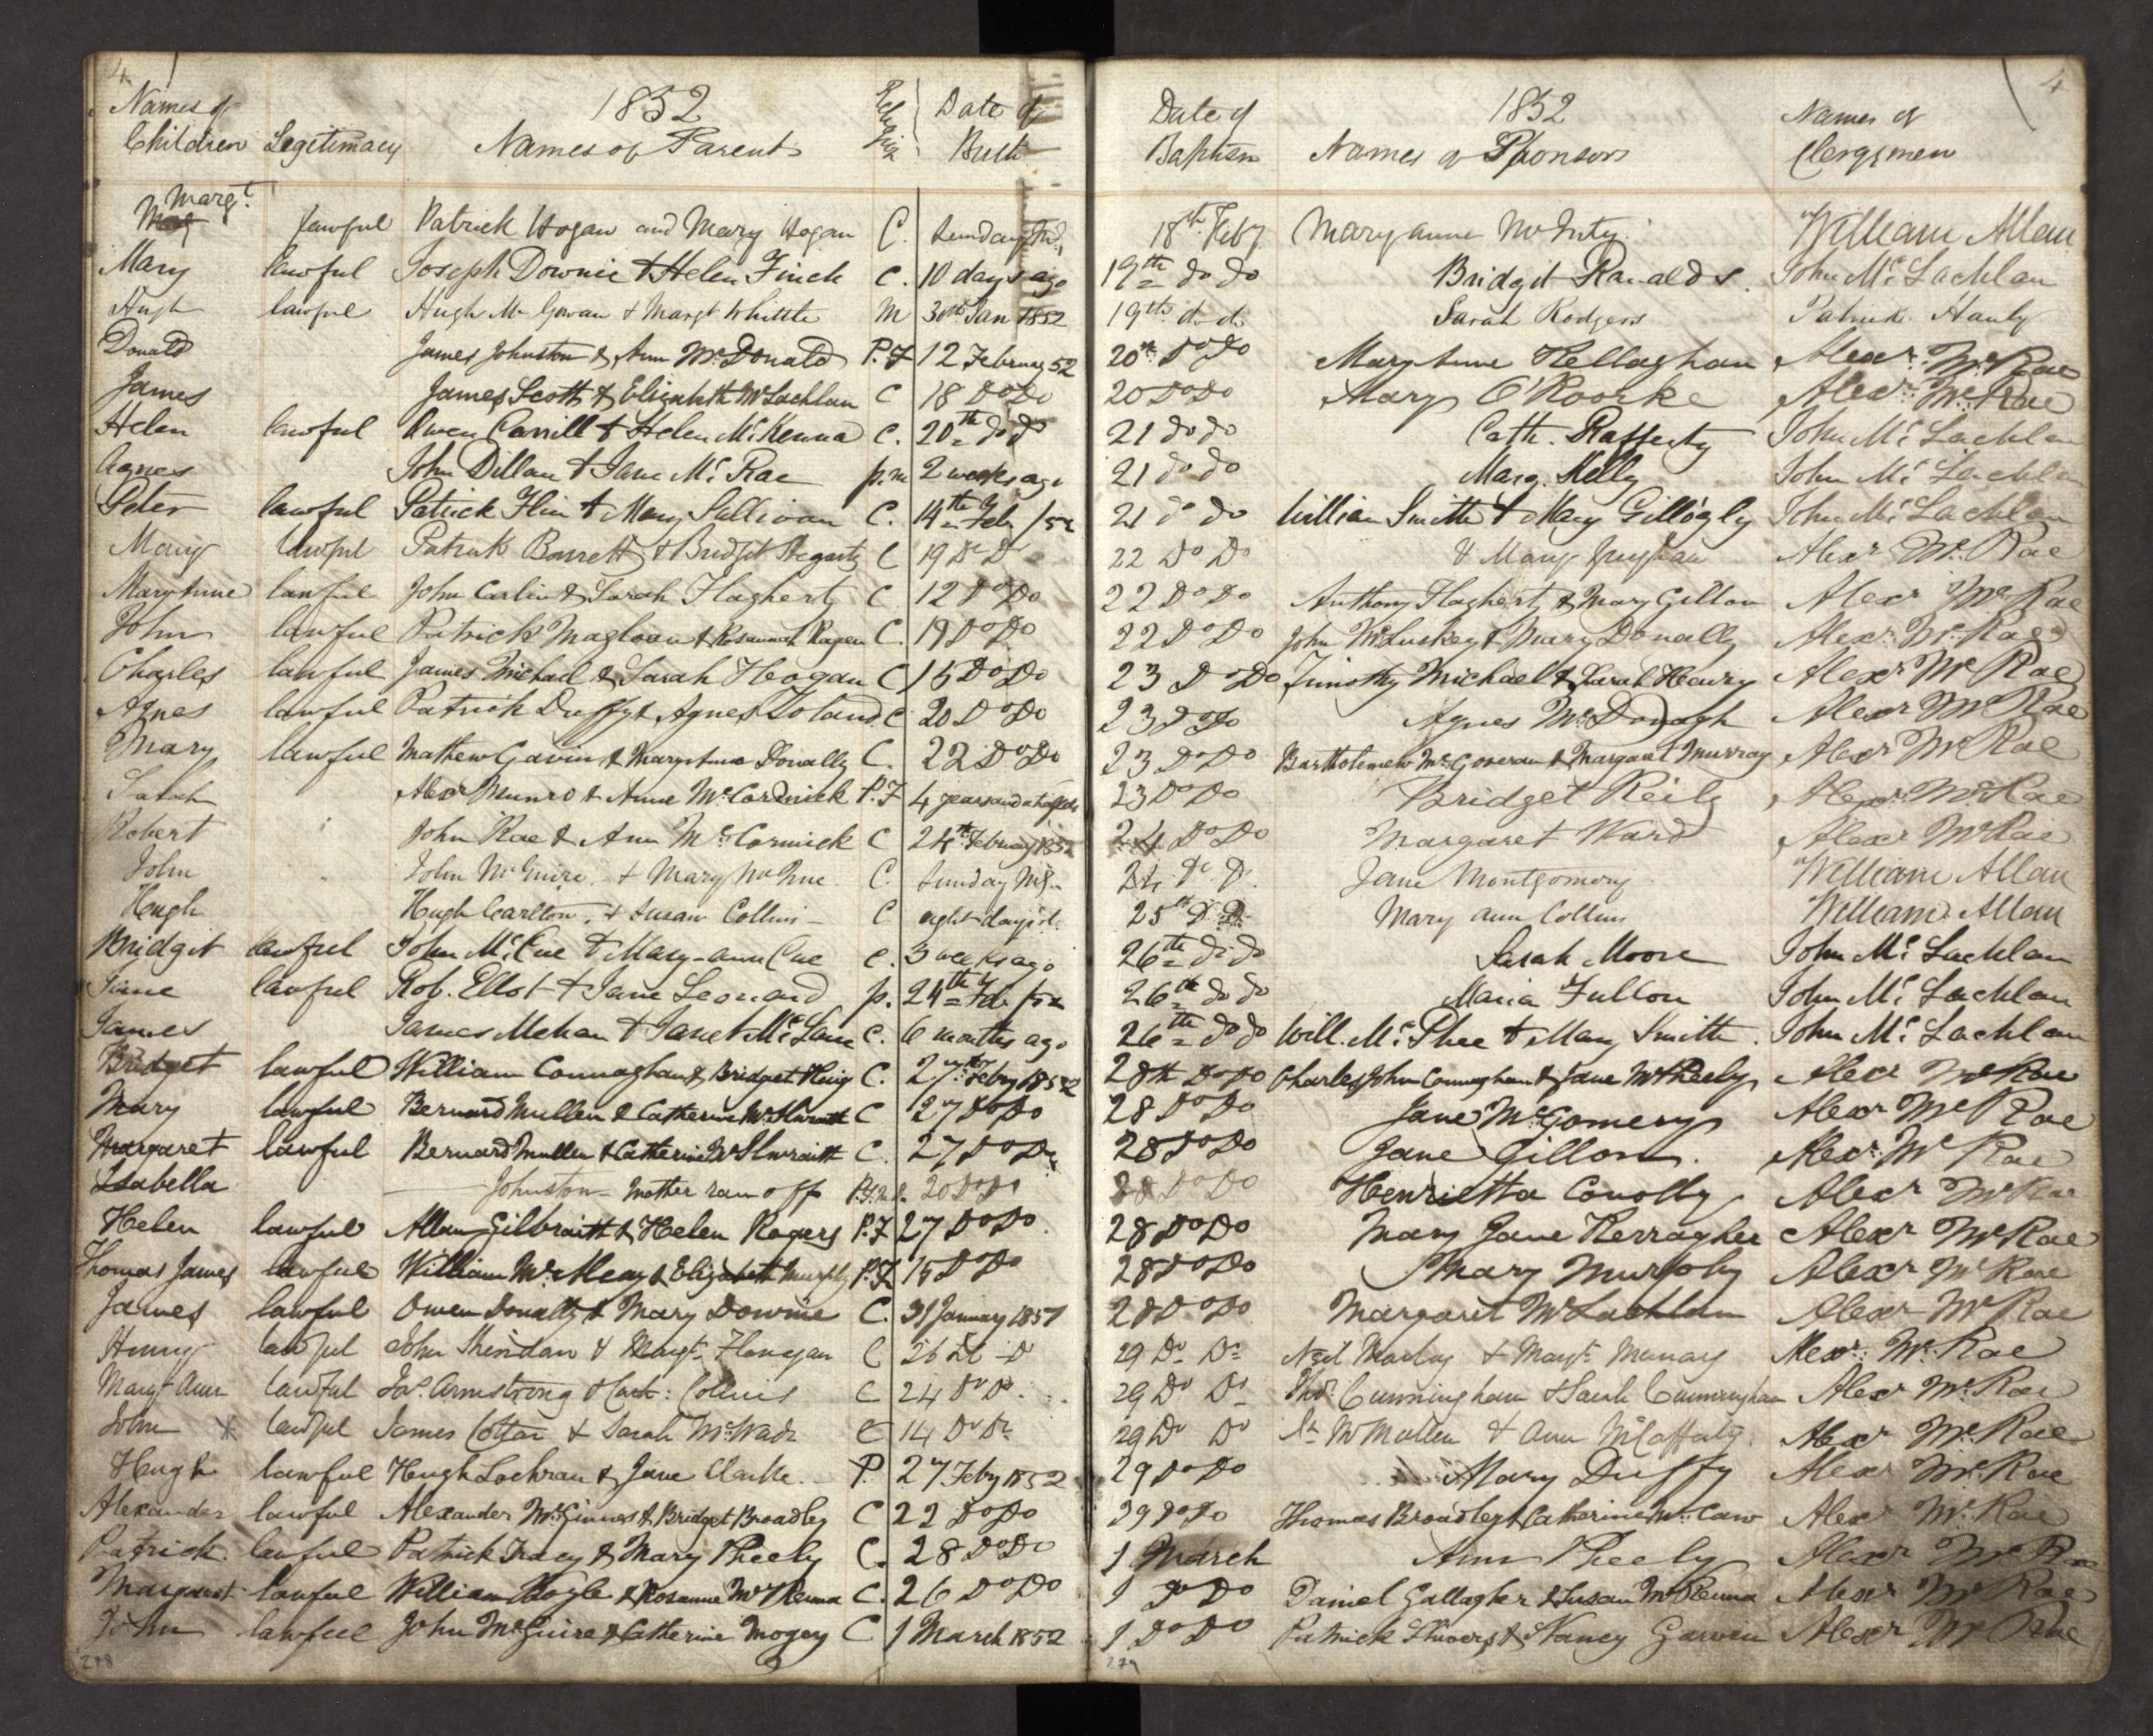 4
Names of Children Legitimacy 1852 Names of Parents Religion Date of Birth
Date of Baptism 1852 Names of Sponsors Names of Clergymen
4
Margt. lawful Patrick Hogan and Mary Hogan C. Sunday 18th Feby Mary anne McInty William Allan
Mary lawful Joseph Downie & Helen Finch C. 10 days ago 19th do do Bridgit Ranalds. John Mc Lachlan
Hugh lawful Hugh Mc Gowan & Margt Whittle M 30th Jan 1852 19th do do Sarah Rodgers Patrick Hanly
Donald James Johnston & Ann McDonald P.F 12 February 52 20th Do Do Mary Anne Hellaghan Alexr. McRae
James James Scott & Elizabeth McLachlan C 18 Do Do 20 Do Do Mary O'Roorke Alexr. McRae
Helen lawful Owen Carrill & Helen McKenna C. 20th do do 21 do do Cath. Rafferty John Mc Lachlan
Agnes John Dillan & Jane Mc Rae p.m 2 weeks ago 21 do do Marg. Kelly John Mc Lachlan
Peter lawful Patrick Flin & Mary Sullivan C. 14th Feby /52 21 do do William Smith & Mary Gillogly John Mc Lachlan
Mary lawful Patrick Barrett & Bridgit Hegarty C 19 Do Do 22 Do Do & Mary Alexr Mc Rae
Mary Anne lawful John Carlin & Sarah Flagherty C 12 Do Do 22 Do Do Anthony Flagherty & Mary Gillon Alexr McRae
John lawful Patrick Magloan & Rosannah Ragen C. 19 Do Do 22 Do Do John McLuskey & Mary Donally Alexr. McRae
Charles lawful James Michael & Sarah Heogan C 15 Do Do 23 Do Do Timothy Michael & Sarah Heavry Alexr McRae
Agnes lawful Patrick Duffy & Agnes Toland C 20 Do Do 23 Do Do Agnes McDonagh Alexr McRae
Mary lawful Mathew Gavin & Mary Anne Donally C. 22 Do Do 23 Do Do Bartholemew McGoveran & Margaret Murray Alexr McRae
Sarah Alexr Munro & Anne McCordnick P.F 4 years and a half old 23 Do Do Bridget Reily Alexr. McRae
Robert John Rae & Ann McCormick C 24th February 1852 24 Do Do Margaret Ward Alexr McRae
John John McGuire & Mary C. Sunday 24 Do Do Jane Montgomery William Allan
Hugh Hugh Carlton & Susan Collins C eight days 25th Do Do Mary ann Collins William Allan
Bridgit lawful John McCue & Mary-ann Cue C. 3 weeks ago 26th do do Sarah Moore John Mc Lachlan
Jane lawful Rob. Ellot & Jane Leonard p. 24th Feby /52 26th do do Maria Fullon John Mc Lachlan
James James Mehan & Janet Mc Lane C. 6 months ago 26th do do Will. Mc Phee & Mary Smith. John Mc Lachlan
Bridget lawful William Connaghan & Bridget Heig C. 27th Feby 1852 28th Do Do Charles John Connaghan & Jane McPheely Alexr McRae
Mary lawful Bernard Mullen & Catherine McIlwraith C 27 Do Do 28 Do Do Jane McGomery Alexr McRae
Margaret lawful Bernard Mullen & Catherine McIlwraith C. 27 Do Do 28 Do Do Jane Gillon. Alexr. McRae
Isabella Johnston mother ran off 20 Do Do 28 Do Do Henrietta Conolly Alexr McRae
Helen lawful Allan Gilbraith & Helen Rogers P.F 27 Do Do 28 Do Do Mary Jane Kerragher Alexr McRae
Thomas James lawful William McMeay & Elizabeth Murphy P.F 15 Do Do 28 Do Do Mary Murphy Alexr McRae
James lawful Owen Donally & Mary Downie C. 31 January 1851 28 Do Do Margaret McLachlan Alexr McRae
Henry lawful John Sheridan & Margt. Flanagan C 26 Do 29 Do Do Neil & Margt. Alexr. McRae
Margt Ann lawful Jas. Armstrong & Cath: Collins C 24 Do Do 29 Do Do Thos. Cunningham & Sarah Cunningham Alexr McRae
John lawful James Cottar & Sarah McWade C 14 Do Do 29 Do Do McMullen & Ann McCafferty Alexr McRae
Hugh lawful Hugh Lochran & Jane Clarke P. 27 Feby 1852 29 Do Do Mary Duffy Alexr McRae
Alexander lawful Alexander McGinnes & Bridget Broadley C 22 Do Do 29 Do Do Thomas Broadley & Catherine McCaw Alexr McRae
Patrick lawful Patrick Tracy & Mary Pheely C. 28 Do Do 1 March Ann Pheely Alexr McRae
Margaret lawful William Bogle & Rosanne McKenna C. 26 Do Do 1 Do Do Daniel Gallagher & Susan McKenna Alexr McRae
John lawful John McGuire & Catherine Mogey C 1 March 1852 1 Do Do Patrick Shivers & Nancy Garven Alexr McRae
278
279